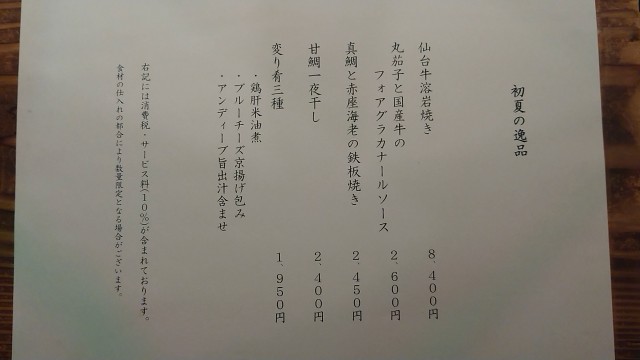 初夏の逸品
仙台牛溶岩焼き 8,400円
丸茄子と国産牛の
フォアグラカナールソース 2,600円
真鯛と赤座海老の鉄板焼き 2,450円
甘鯛一夜干し 2,400円
変り肴三種 1,950円
・鶏肝米油煮
・ブルーチーズ京揚げ包み
・アンディーブ旨出汁含ませ
右記には消費税・サービス料(10%)が含まれております。
食材の仕入れの都合により数量限定となる場合がございます。